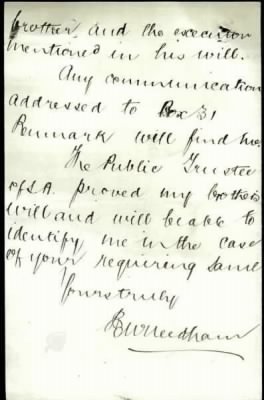 brother, and the executor
mentioned in his will.
Any communication
addressed to Box 31
Penmark will find me.
The Public Trustee
of S.A. proved my brothers
will and will be able to
identify me in the case
of your requiring same
Yours truly
Needham